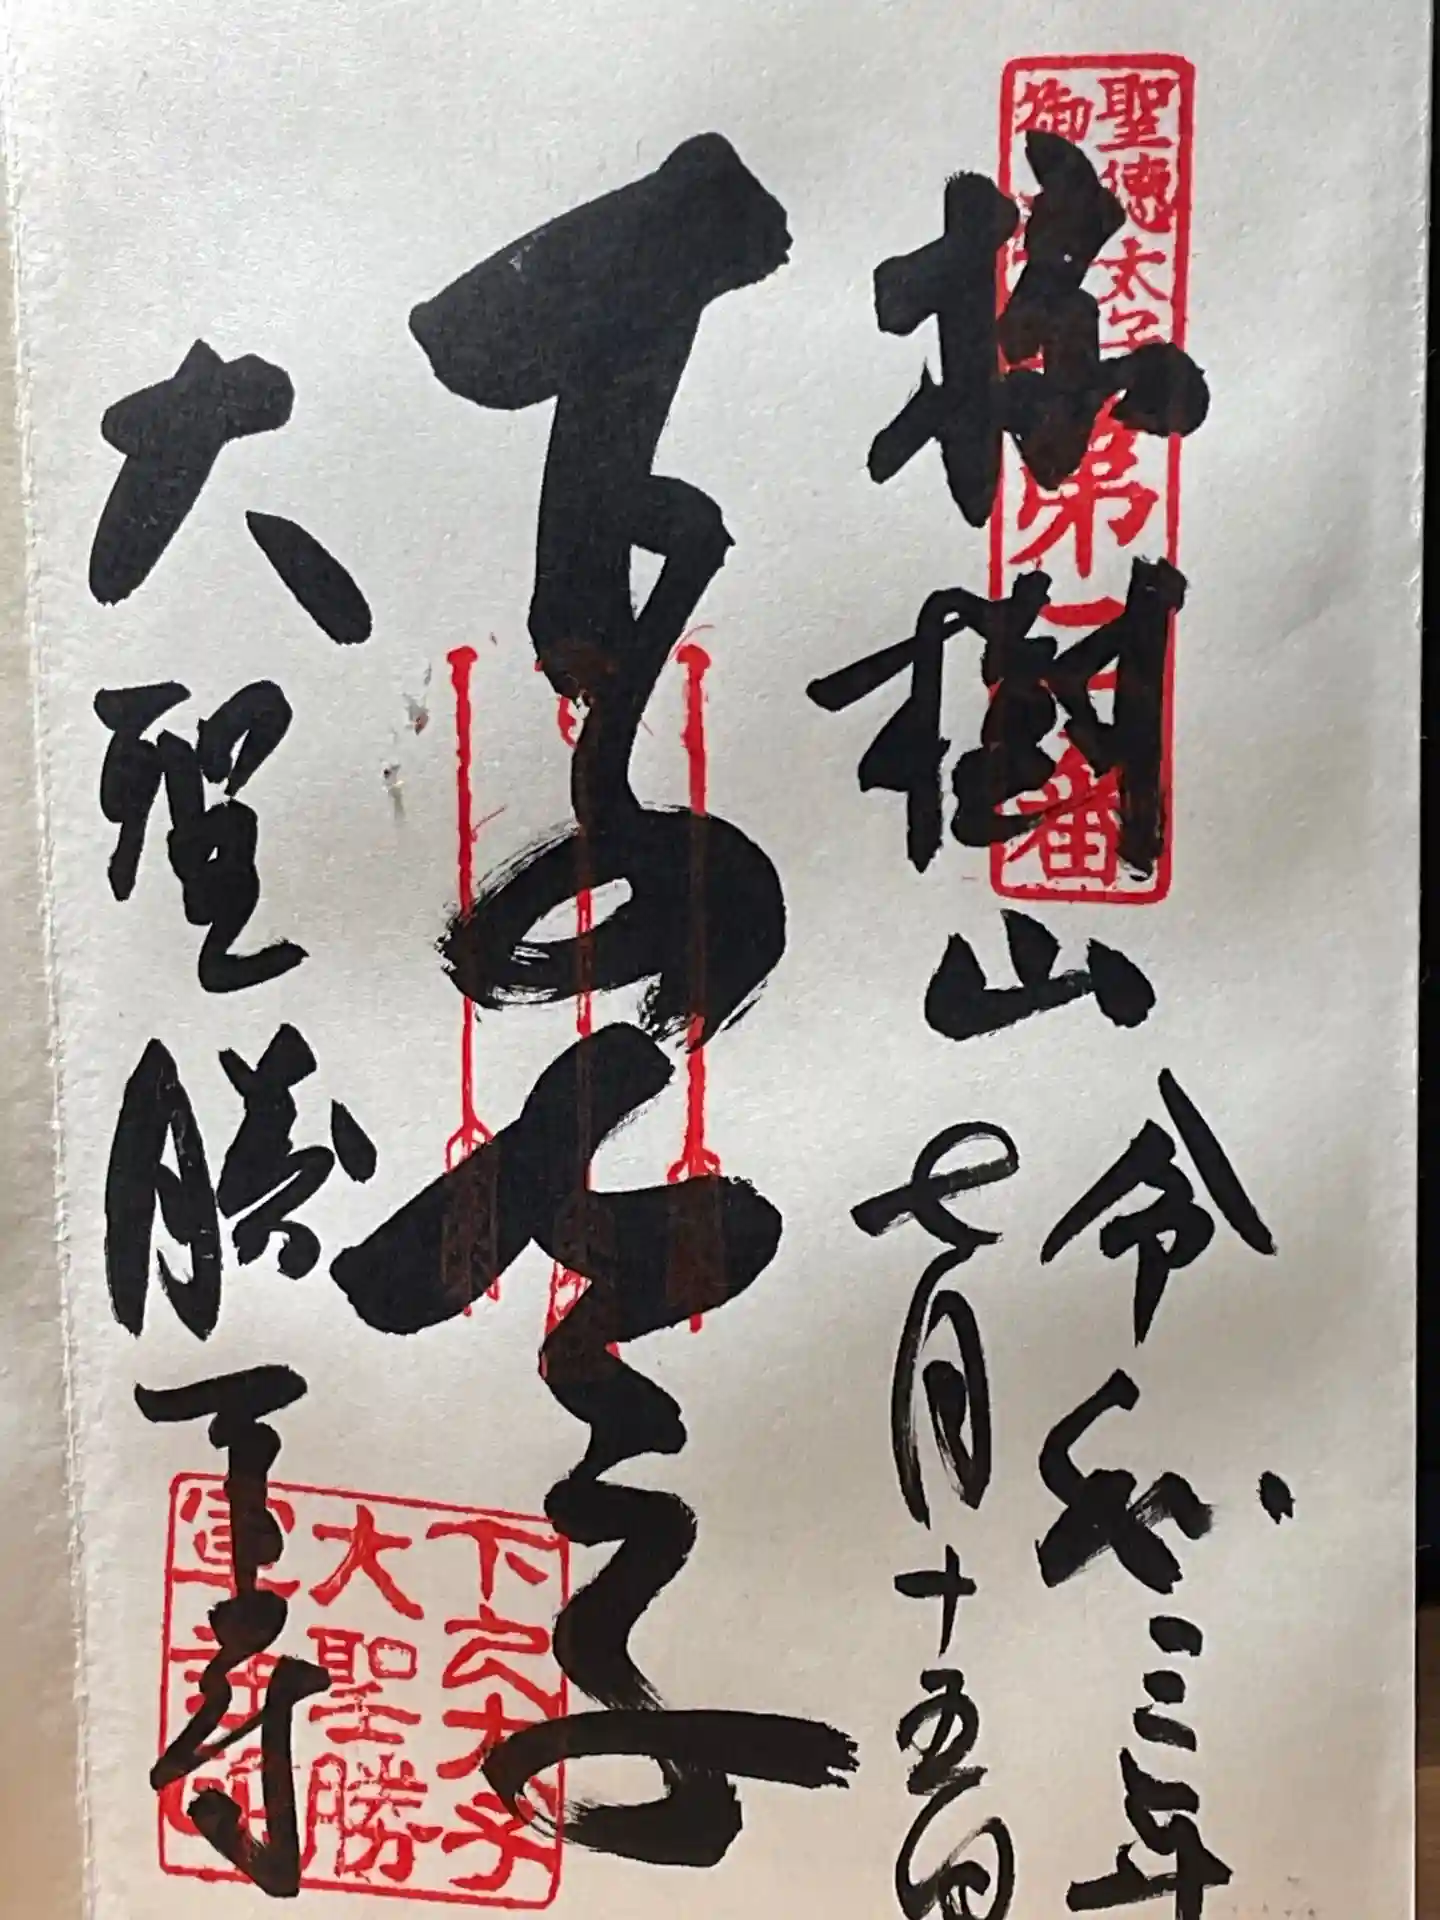 聖徳太子
御
第
番
椋樹山
令和三年
七月十五日
下の太子
大聖勝軍寺
下之太子
大聖勝
軍寺印